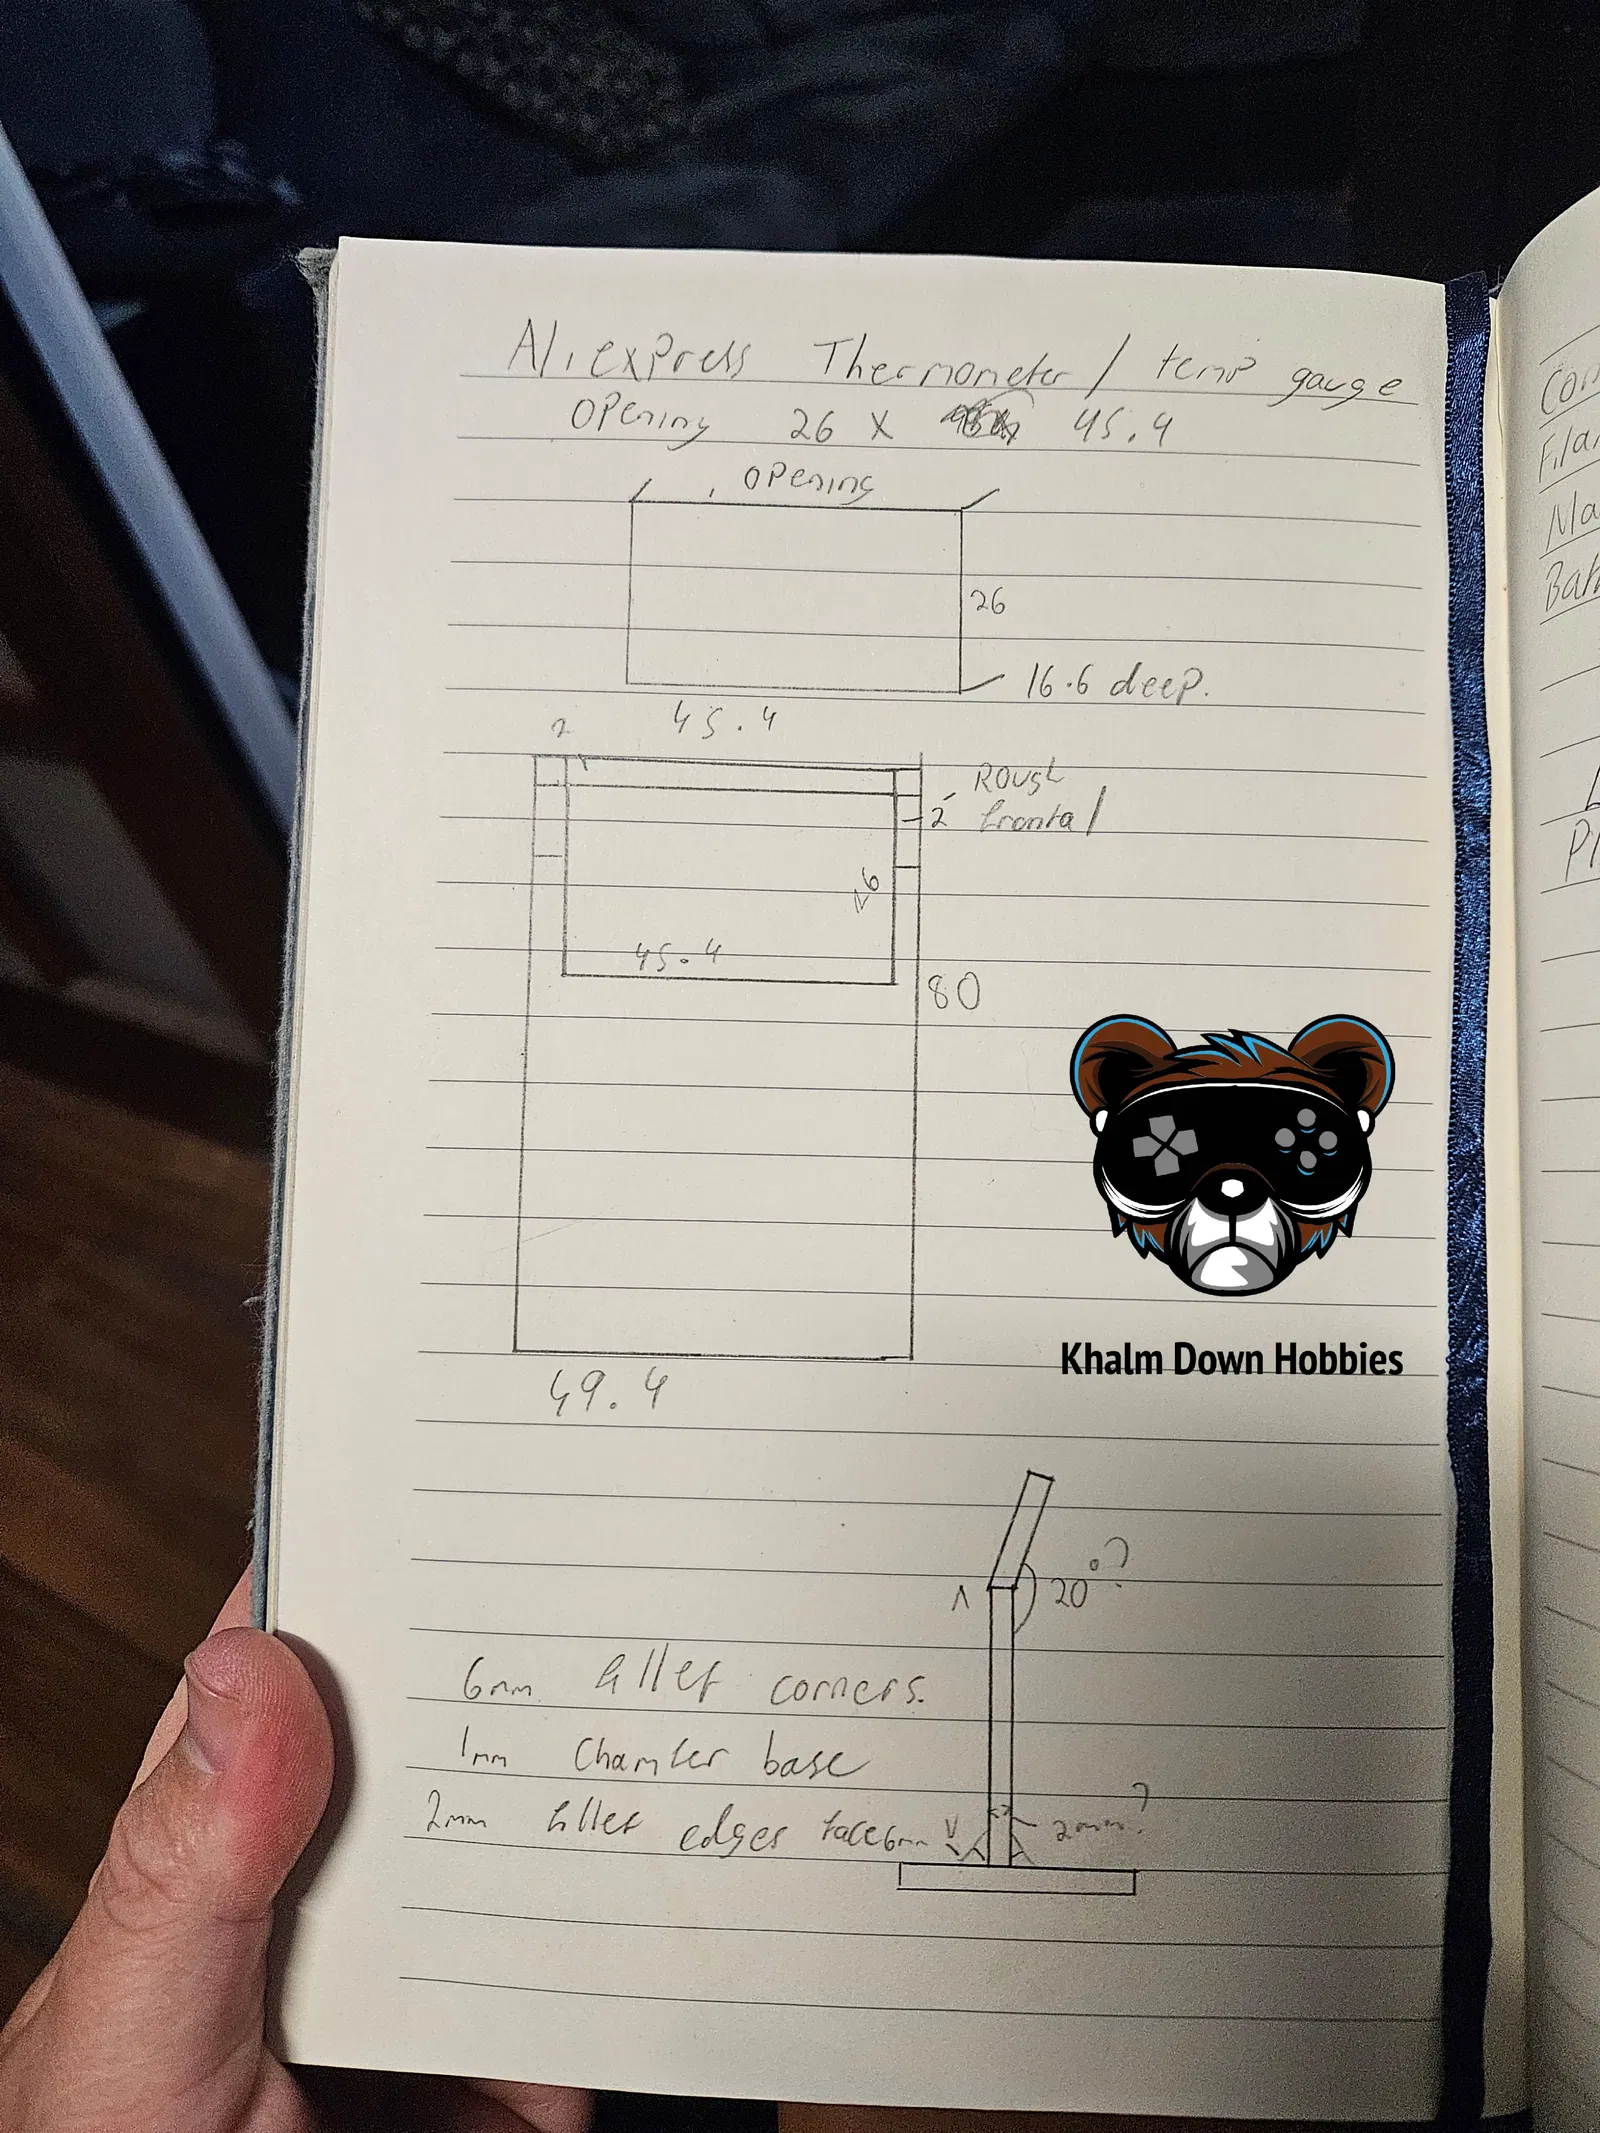 AliexPress Thermometer / temp gauge
Opening 26 x 45.4
Opening
26
16.6 deep.
45.4
2
Rough
2 frontal
26
45.4
80
49.4
Khalm Down Hobbies
20°?
6mm fillet corners.
1mm Chamfer base
2mm fillet edges face
6mm
2mm?
Con
Fila
Ma
Bat